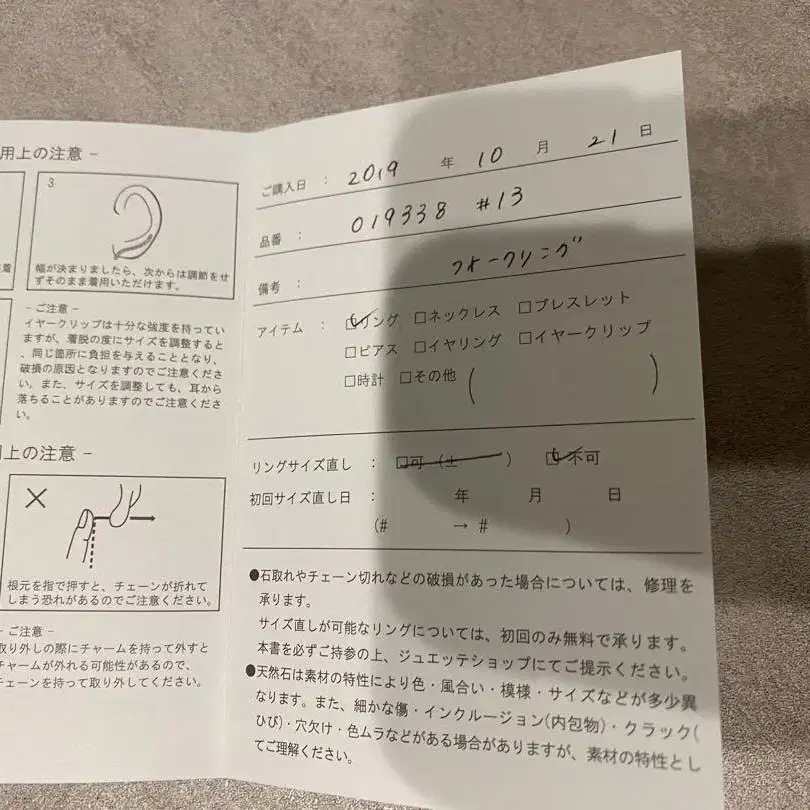 用上の注意 -
3
幅が決まりましたら、次からは調節をせ
ずそのまま着用いただけます。
- ご注意 -
イヤークリップは十分な強度を持ってい
ますが、着脱の度にサイズを調整すると
、同じ箇所に負担を与えることとなり、
破損の原因となりますのでご注意くださ
い。また、サイズを調整しても、耳から
落ちることがありますのでご注意くださ
い。
用上の注意 -
根元を指で押すと、チェーンが折れて
しまう恐れがあるのでご注意ください。
- ご注意 -
取り外しの際にチャームを持って外すと
チャームが外れる可能性があるので、
チェーンを持って取り外してください。
ご購入日 : 2019 年 10 月 21 日
品番 : 019338 #13
備考 : フォークリング
アイテム : □リング □ネックレス □ブレスレット
□ピアス □イヤリング □イヤークリップ
□時計 □その他 ( )
リングサイズ直し : □可 (± ) □不可
初回サイズ直し日 : 年 月 日
(# → # )
●石取れやチェーン切れなどの破損があった場合については、修理を
承ります。
サイズ直しが可能なリングについては、初回のみ無料で承ります。
本書を必ずご持参の上、ジュエッテショップにてご提示ください。
●天然石は素材の特性により色・風合い・模様・サイズなどが多少異
なります。また、細かな傷・インクルージョン(内包物)・クラック(
ひび)・穴欠け・色ムラなどがある場合がありますが、素材の特性とし
てご理解ください。